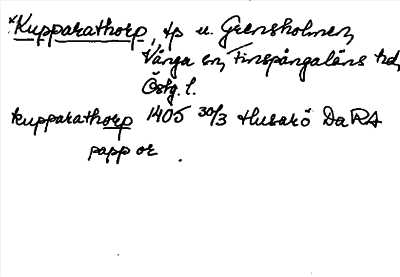 *Kupparathorp, tp u. Grensholmen,
Vånga sn, Finspångaläns hd,
Östg. l.
kupparathorp 1405 30/3 Husarö Da RA
papp or.